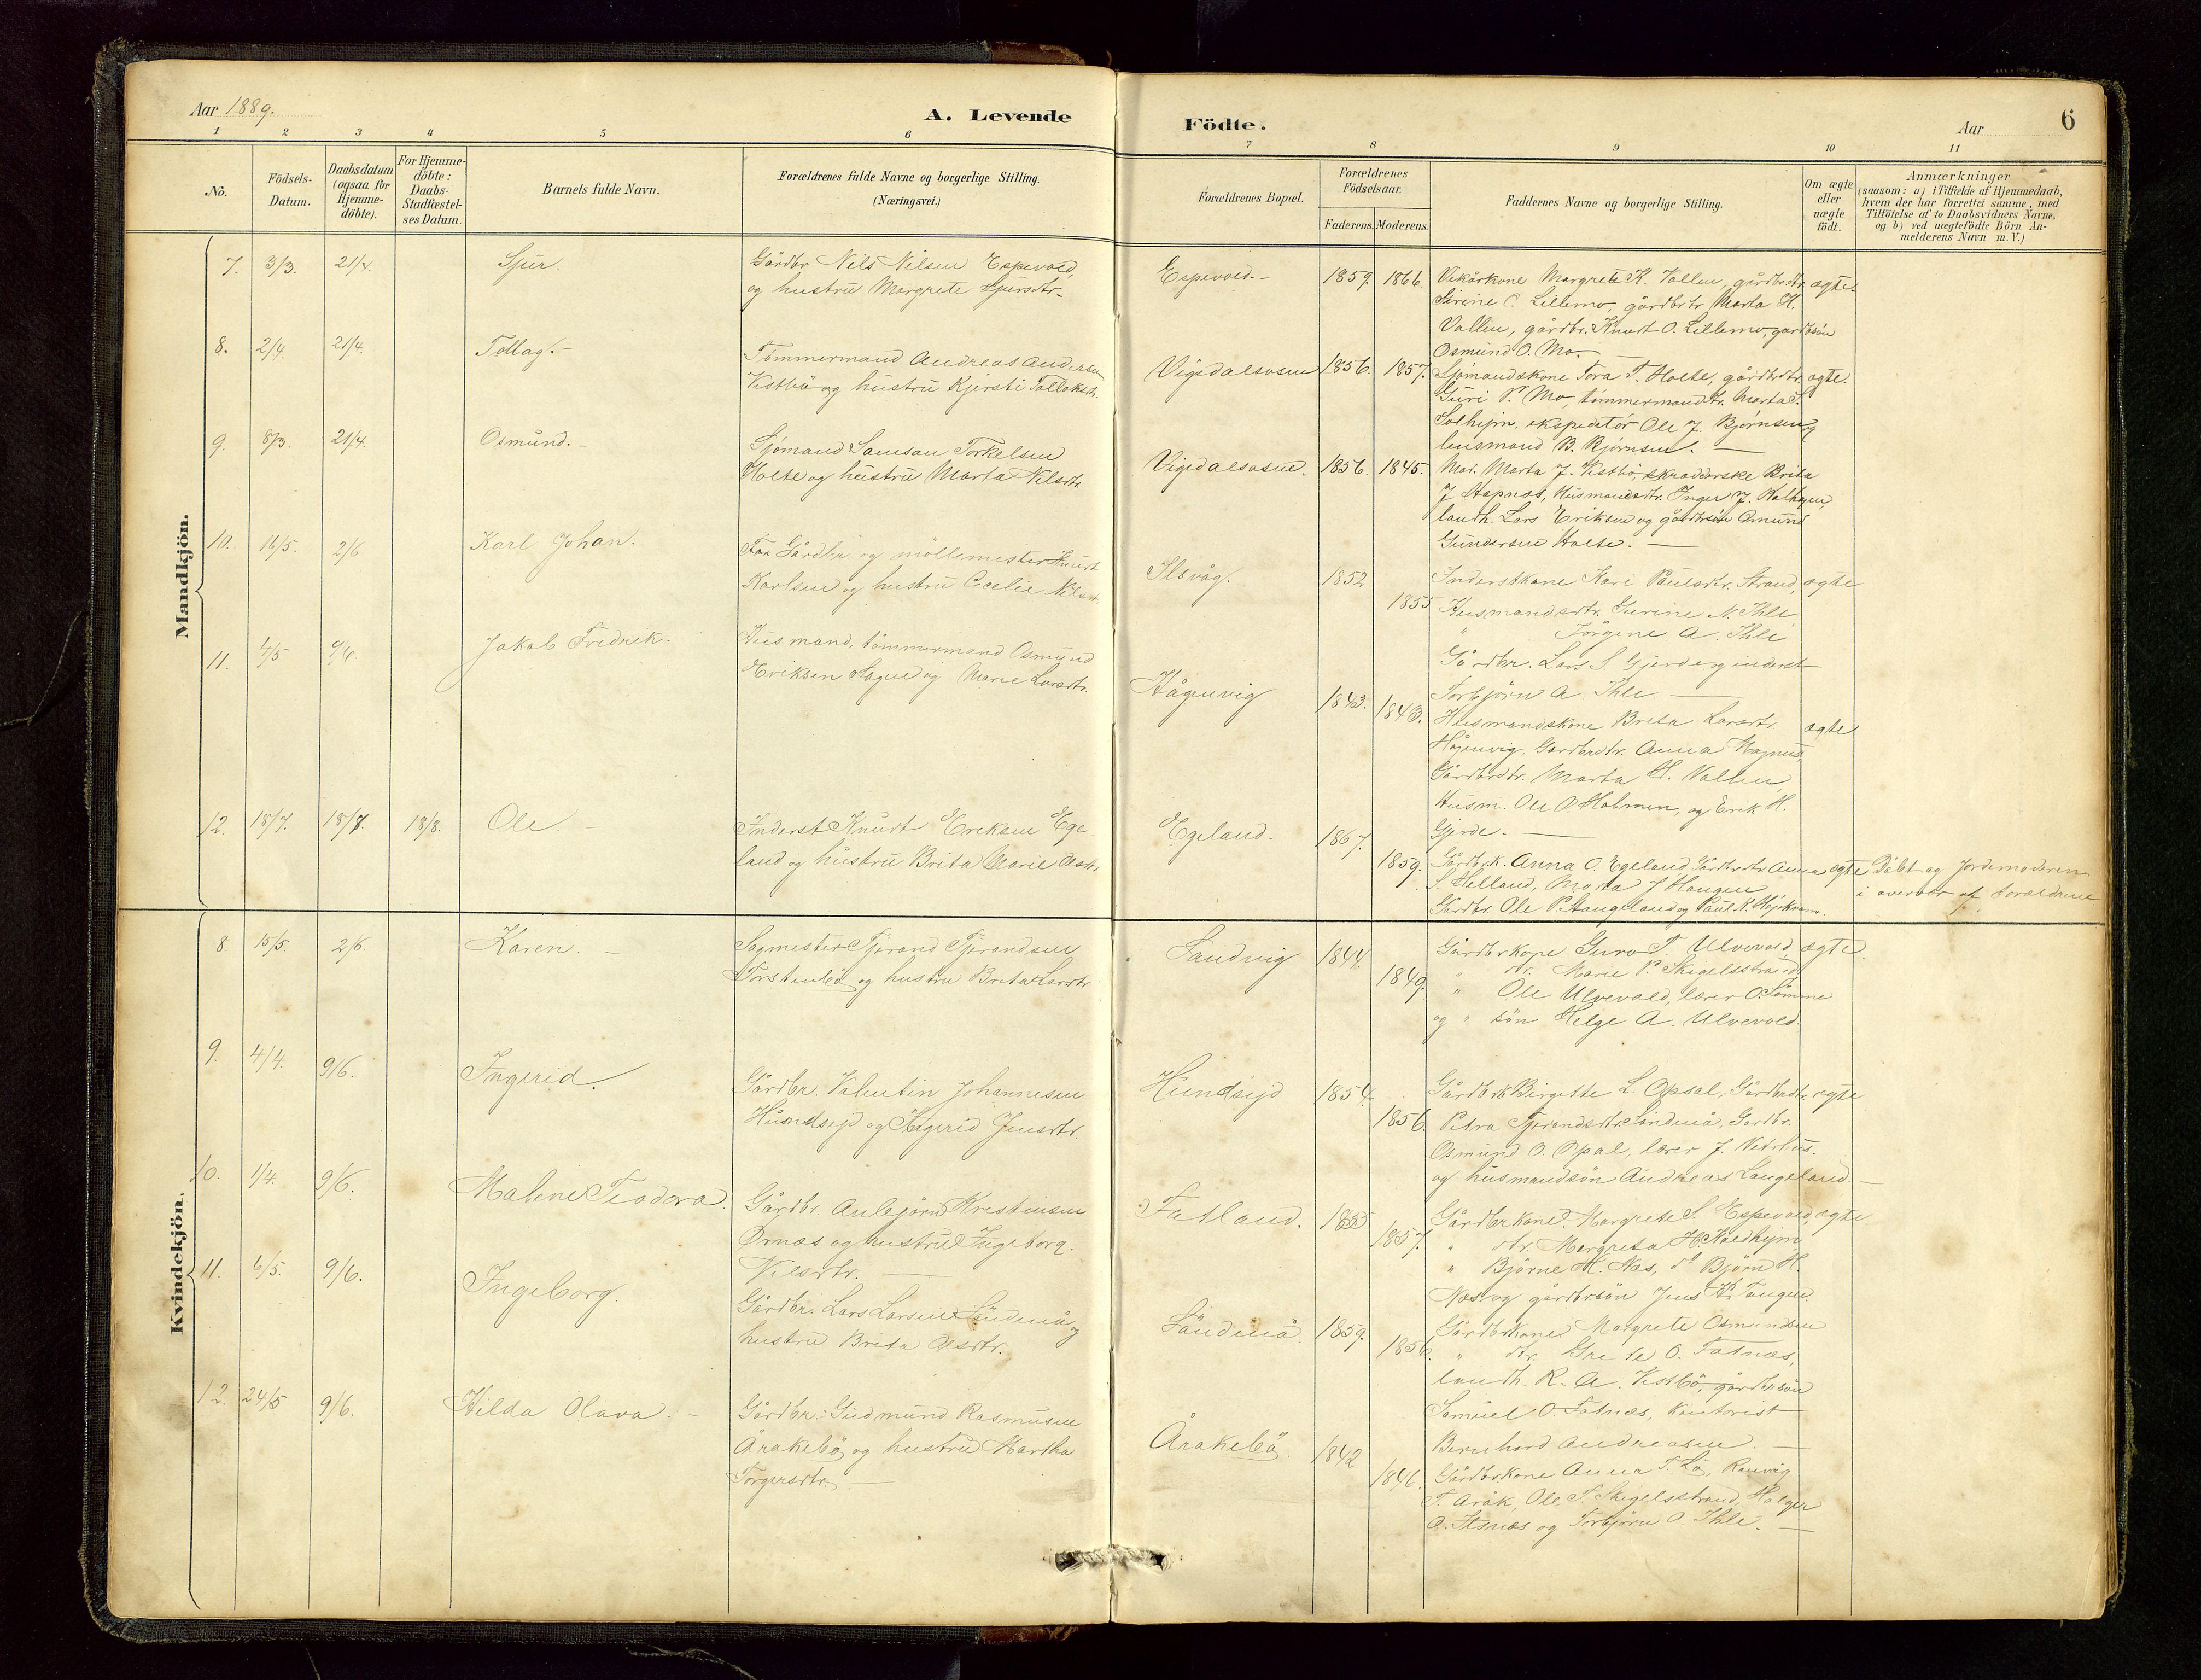 Aar 1889.
A. Levende
Födte.
Aar
6
1 2 3 4 5 6 7 8 9 10 11
No.
Födsels-
Datum.
Daabsdatum
(ogsaa for
Hjemme-
döbte).
For Hjemme-
döbte:
Daabs-
Stadfæstel-
ses Datum.
Barnets fulde Navn.
Forældrenes fulde Navne og borgerlige Stilling.
(Næringsvei.)
Forældrenes Bopæl.
Forældrenes
Födselsaar.
Faderens. Moderens.
Faddernes Navne og borgerlige Stilling.
Om ægte
eller
uægte
födt.
Anmærkninger
(saasom: a) i Tilfælde af Hjemmedaab,
hvem der har forrettet samme, med
Tilföielse af to Daabsvidners Navne.
og b) ved uægtefödte Börn An-
melderens Navn m. V.)
Mandkjön.
7. 3/3. 21/4. Sjur.
Gårdbr Nils Nilsen Espevold,
og hustru Margrete Sjursdtr.
Espevold 1859. 1866.
Vikårkone Margrete K. Vallen, gårdbrdtr. ægte.
Serine C. Lillemo, gårdbrdtr Marta H.
Vallen, gårdbr. Knut O. Lillemo, gardbsön
Osmund O. Mo.
8. 2/4. 21/4. Tollag.
Tömmermand Andreas Andersen
Vestbö og hustru Kjersti Tolloksdtr.
Vigedalsosen 1856. 1857.
Sjömandskone Tora T. Holte, gårdbrdtr. ægte.
Guri P. Mo, tömmermandsdtr. Marta S.
Solhejm, ekspeditör Ole J. Björnsen og
lensmand B. Björnsen.
9. 8/3. 21/4. Osmund.
Sjömand Samson Torkelsen
Holte og hustru Marta Nilsdtr
Vigedalsosen. 1856. 1845.
Mad. Marta J. Vestbö, skrædderske Brita
J Hapnæs, Husmandsdtr. Inger J.
landh. Lars Eriksen og gårdbrsön Omund
Gundersen Holte.
10. 16/5. 2/6 Karl Johan.
Gårdbr. og möllemester Knut
Karlsen og hustru Cecelie Nilsdtr.
Ilsvåg. 1852 1855
Inderstkone Kari Paulsdtr. Strand, ægte
Husmandsdtr. Gurine N. Ihle,
" Jörgine A. Ihle
Gårdbr. Lars S Gjerde og inderst
Torbjörn A. Ihle.
11. 4/5 9/6. Jakob Fredrik.
Husmand, tömmermand Osmund
Eriksen Hagen og Marie Larsdtr.
Hågenvig 1843. 1843.
Husmandskone Brita Larsdtr. ægte
Hågenvig, Gardbrdtr. Anna Magnus
Gårdbrdtr. Marta H. Vallen
Husm. Ole O. Holmen, og Erik H.
Gjerde.
12. 18/7. 18/8. 18/8. Ole.
Inderst Knut Eriksen Ege-
land og hustru Brita Marie Olsdtr.
Egeland. 1867. 1859.
Gårdbrk. Anna O. Egeland Gårdbrdtr Anna ægte
S. Helland, Marta J Haugen
Gårdbr. Ole P. Haugeland og Paul N.
Döbt og Jordemoderen
i overvær af forældrene
Kvindekjön.
8. 15/5. 2/6. Karen.
Sagmester Tjerand Tjerandsen
og hustru Brita Larsdtr
Sandvig 1844. 1849.
Gårdbrkone Guro T. Ulvevold, ægte.
" dtr. Marie P. Skigelsstrand
" Ole Ulvevold, lærer O. Tömme
og " sön Helge A. Ulvevold.
9. 4/4. 9/6. Ingerid.
Gårdbr. Valentin Johannesen
Hundsejd og Ingerid Jensdtr.
Hundsejd 1854. 1856.
Gårdbrk Birgitte L. Opsal, Gårdbrdtr ægte
Petra Tjerandsdtr. Söndenå, Gardbr.
Osmund O. Opsal, lærer J.
og husmandsön Andreas Langeland.
10. 1/4. 9/6. Malene Teodora.
Gårdbr Anbjörn Kristensen
Örnæs og hustru Ingeborg
Nilsdtr.
Fatland. 1855 1857.
Gårdbrkone Margrete S. Espevold, ægte
" dtr. Margreta H.
" Björne H. Næs, do Björn H.
Næs og gårdbrsön Jens K. Tangen.
11. 6/5. 9/6. Ingeborg.
Gårdbr. Lars Larsen Söndenå og
hustru Brita Olsdtr.
Söndenå 1859. 1856.
Gårdbrkone Margrete Osmundsen
" dtr. Grete O. Fatnæs,
landh. R. A. Vestbö, gårdbrsön
Samuel O. Fatnæs, Kontorist
Bernhard Andreasen
12. 24/5 9/6. Hilda Olava.
Gårdbr. Gudmund Rasmusen
Årakebö og hustru Martha
Torgersdtr.
Årakebö. 1842 1846.
Gårdbrkone Anna T. Lö, Ranvig
T. Aråk, Ole T. Skigelsstrand, Holger
og Torbjörn O Ihle.